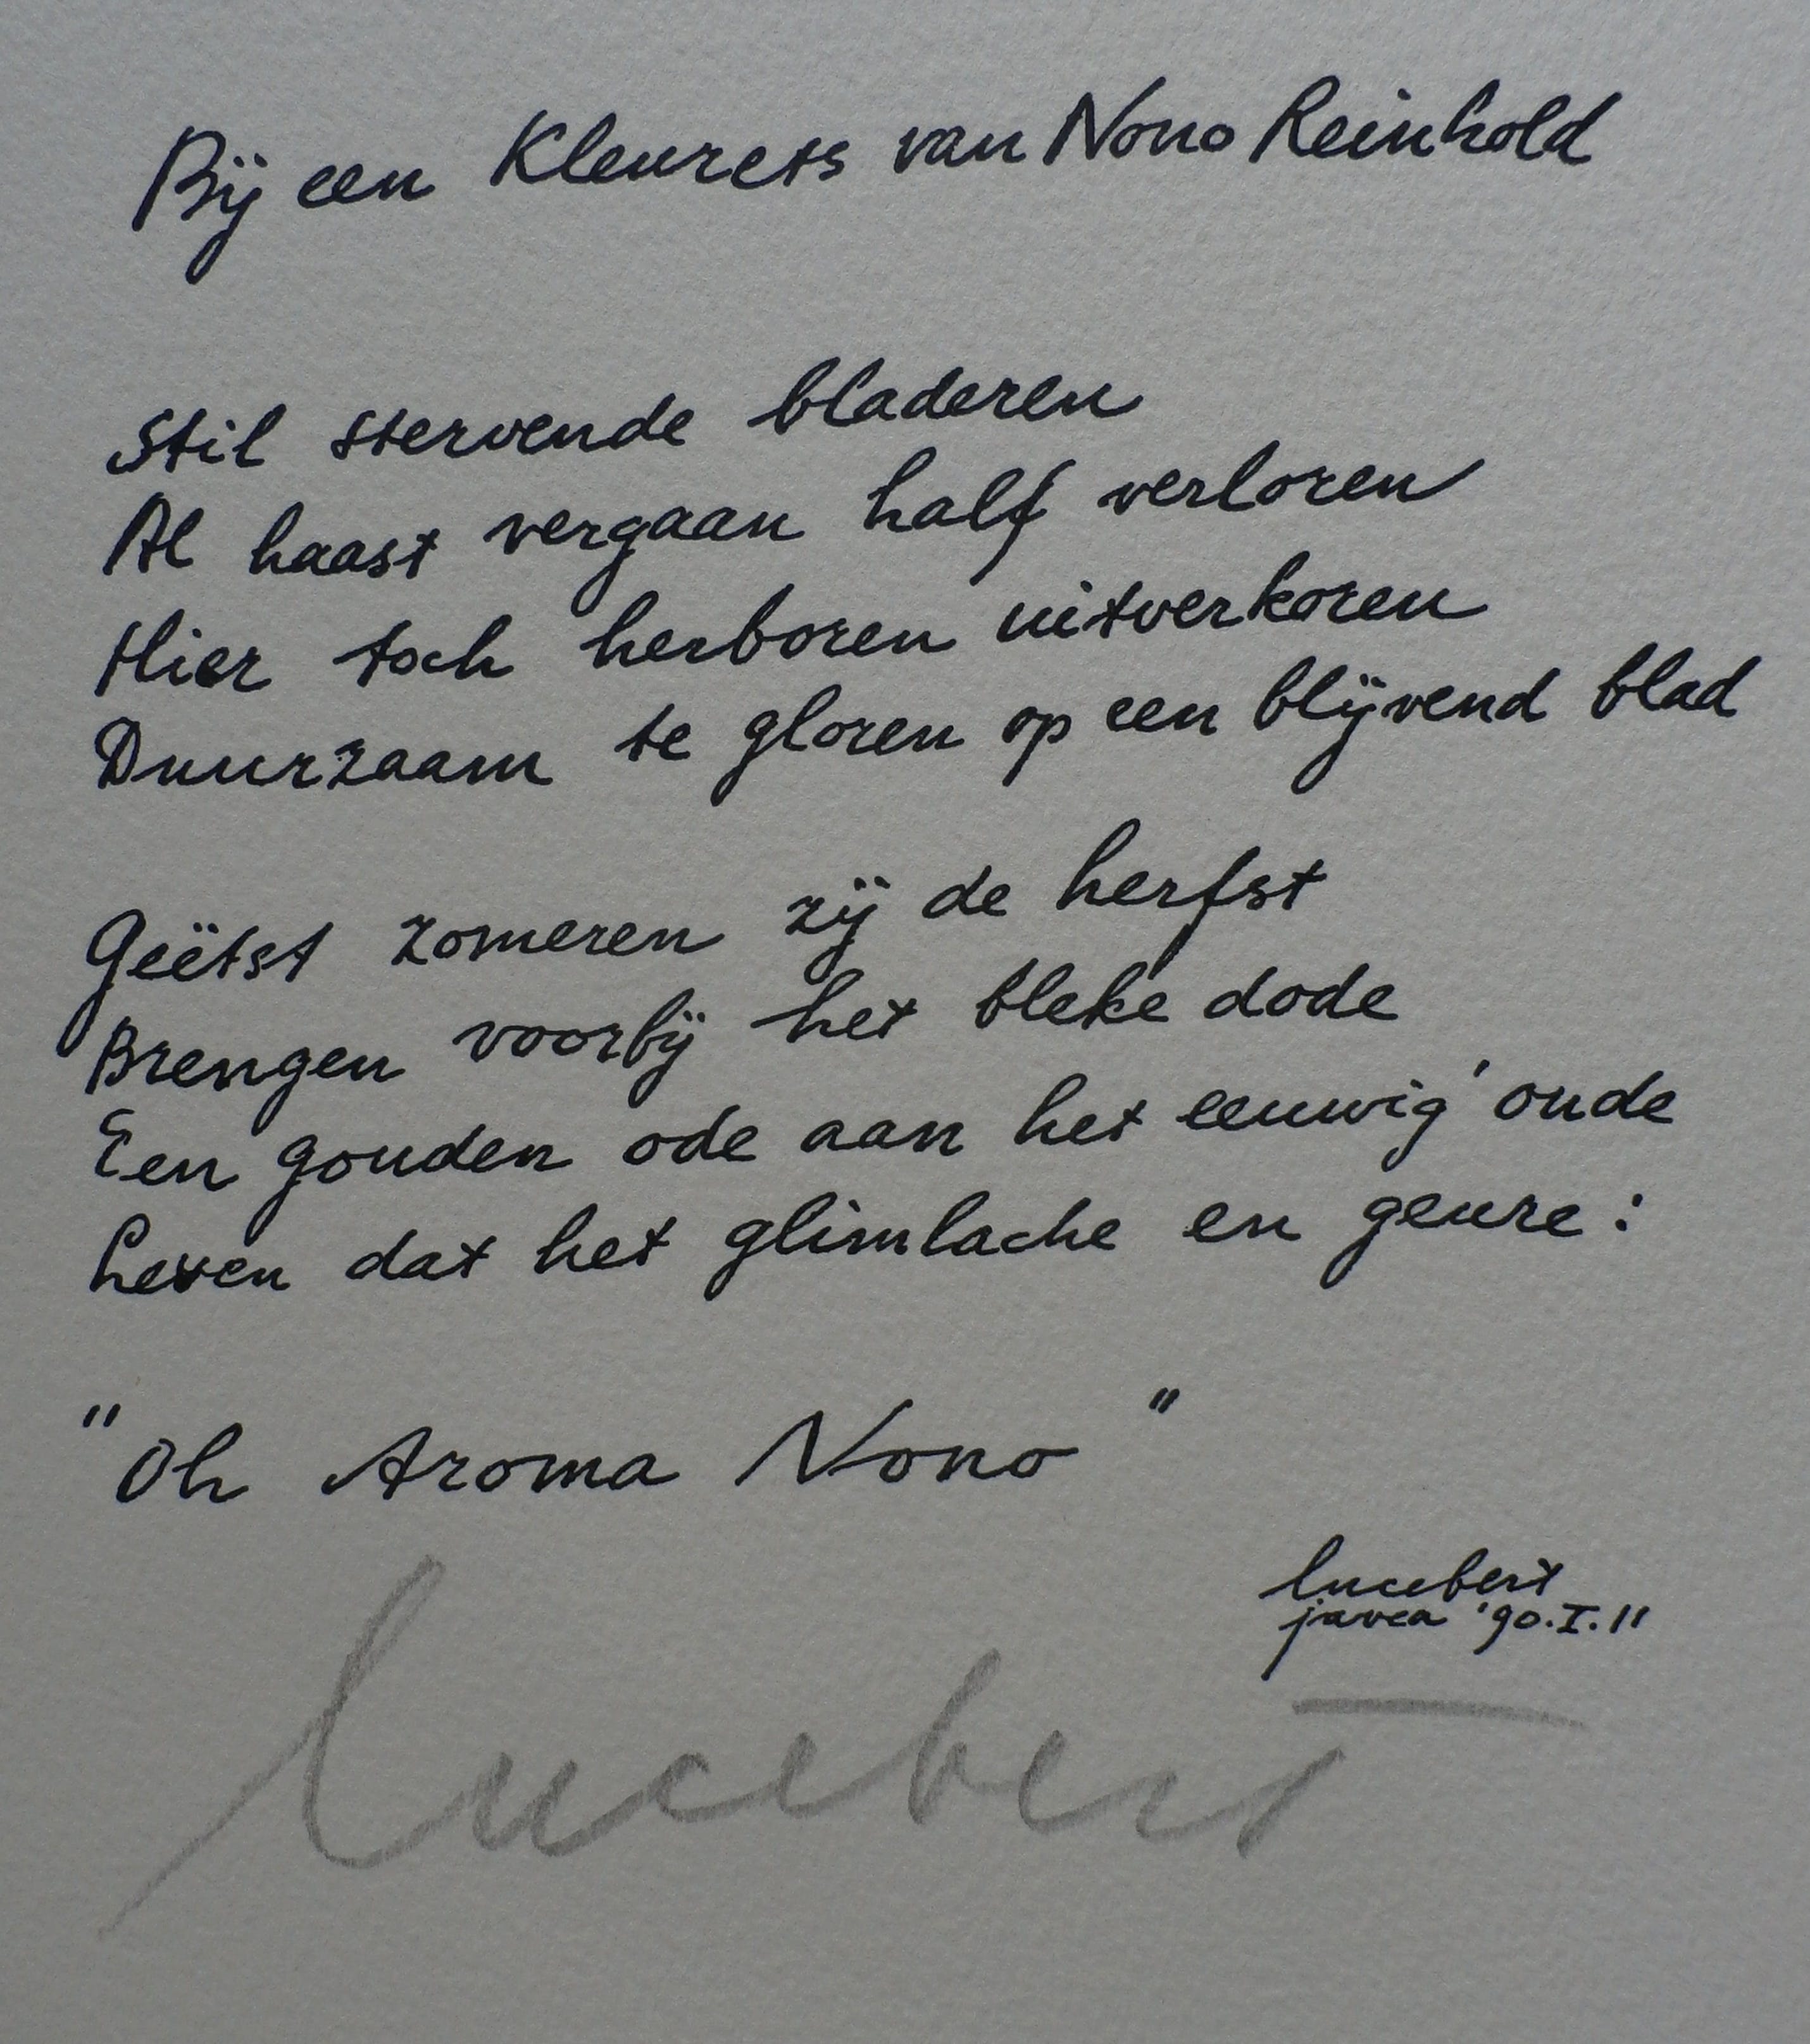 Bij een Kleurets van Nono Reinhold
Stil stervende bladeren
Al haast vergaan half verloren
Hier toch herboren uitverkoren
Duurzaam te gloren op een blijvend blad
Geëtst zomeren zij de herfst
Brengen voorbij het bleke dode
Een gouden ode aan het eeuwig' oude
Leven dat het glimlache en geure :
"Oh Aroma Nono"
lucebert
javea '90.I.11
lucebert